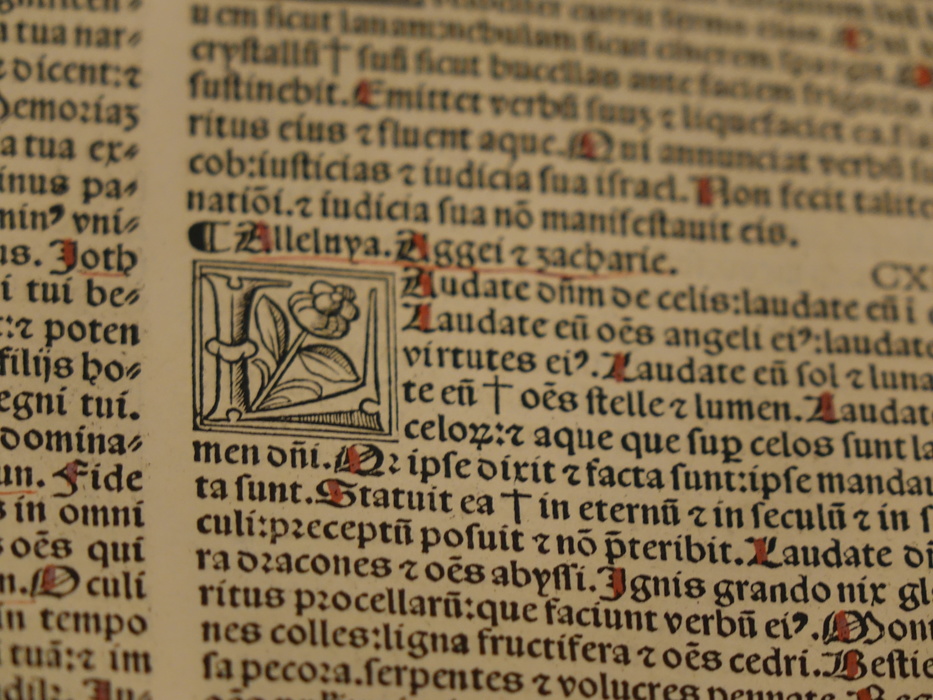 tua nar⸗
dicent:⁊
Memoriaʒ
a tua ex⸗
inus pa⸗
min⁹ vni⸗
us. Joth
i tui be⸗
:⁊ poten
filijs ho⸗
egni tui.
domina⸗
un. Fide
s in omni
oẽs qui
n. Oculi
in tempo
tuã:⁊ im
cryſtallũ † ſuũ ſicut buccellas ante faciem frigoris
ſuſtinebit. Emittet verbũ ſuuʒ ⁊ liquefaciet ea
ritus eius ⁊ fluent aque. Qui annunciat verbũ
cob:iuſticias ⁊ iudicia ſua iſrael. Non fecit talit
natiõi.⁊ iudicia ſua nõ manifeſtauit eis.
¶ Alleluya. Aggei ⁊ zacharie.
CX
Laudate dñm de celis:laudate eũ i
Laudate eũ oẽs angeli ei⁹:laudat
virtutes ei⁹. Laudate eũ ſol ⁊ luna
te eũ † oẽs ſtelle ⁊ lumen. Laudat
celoꝝ:⁊ aque que ſuꝑ celos ſunt la
men dñi. Qꝛ ipſe dixit ⁊ facta ſunt:ipſe manda
ta ſunt. Statuit ea † in eternũ ⁊ in ſeculũ ⁊ in ſ
culi:preceptũ poſuit ⁊ nõ p̃teribit. Laudate
ra dracones ⁊ oẽs abyſſi. Ignis grando nix gl
ritus procellarũ:que faciunt verbũ ei⁹. Mont
nes colles:ligna fructifera ⁊ oẽs cedri. Beſtie
ſa pecora.ſerpentes ⁊ volucres pennate